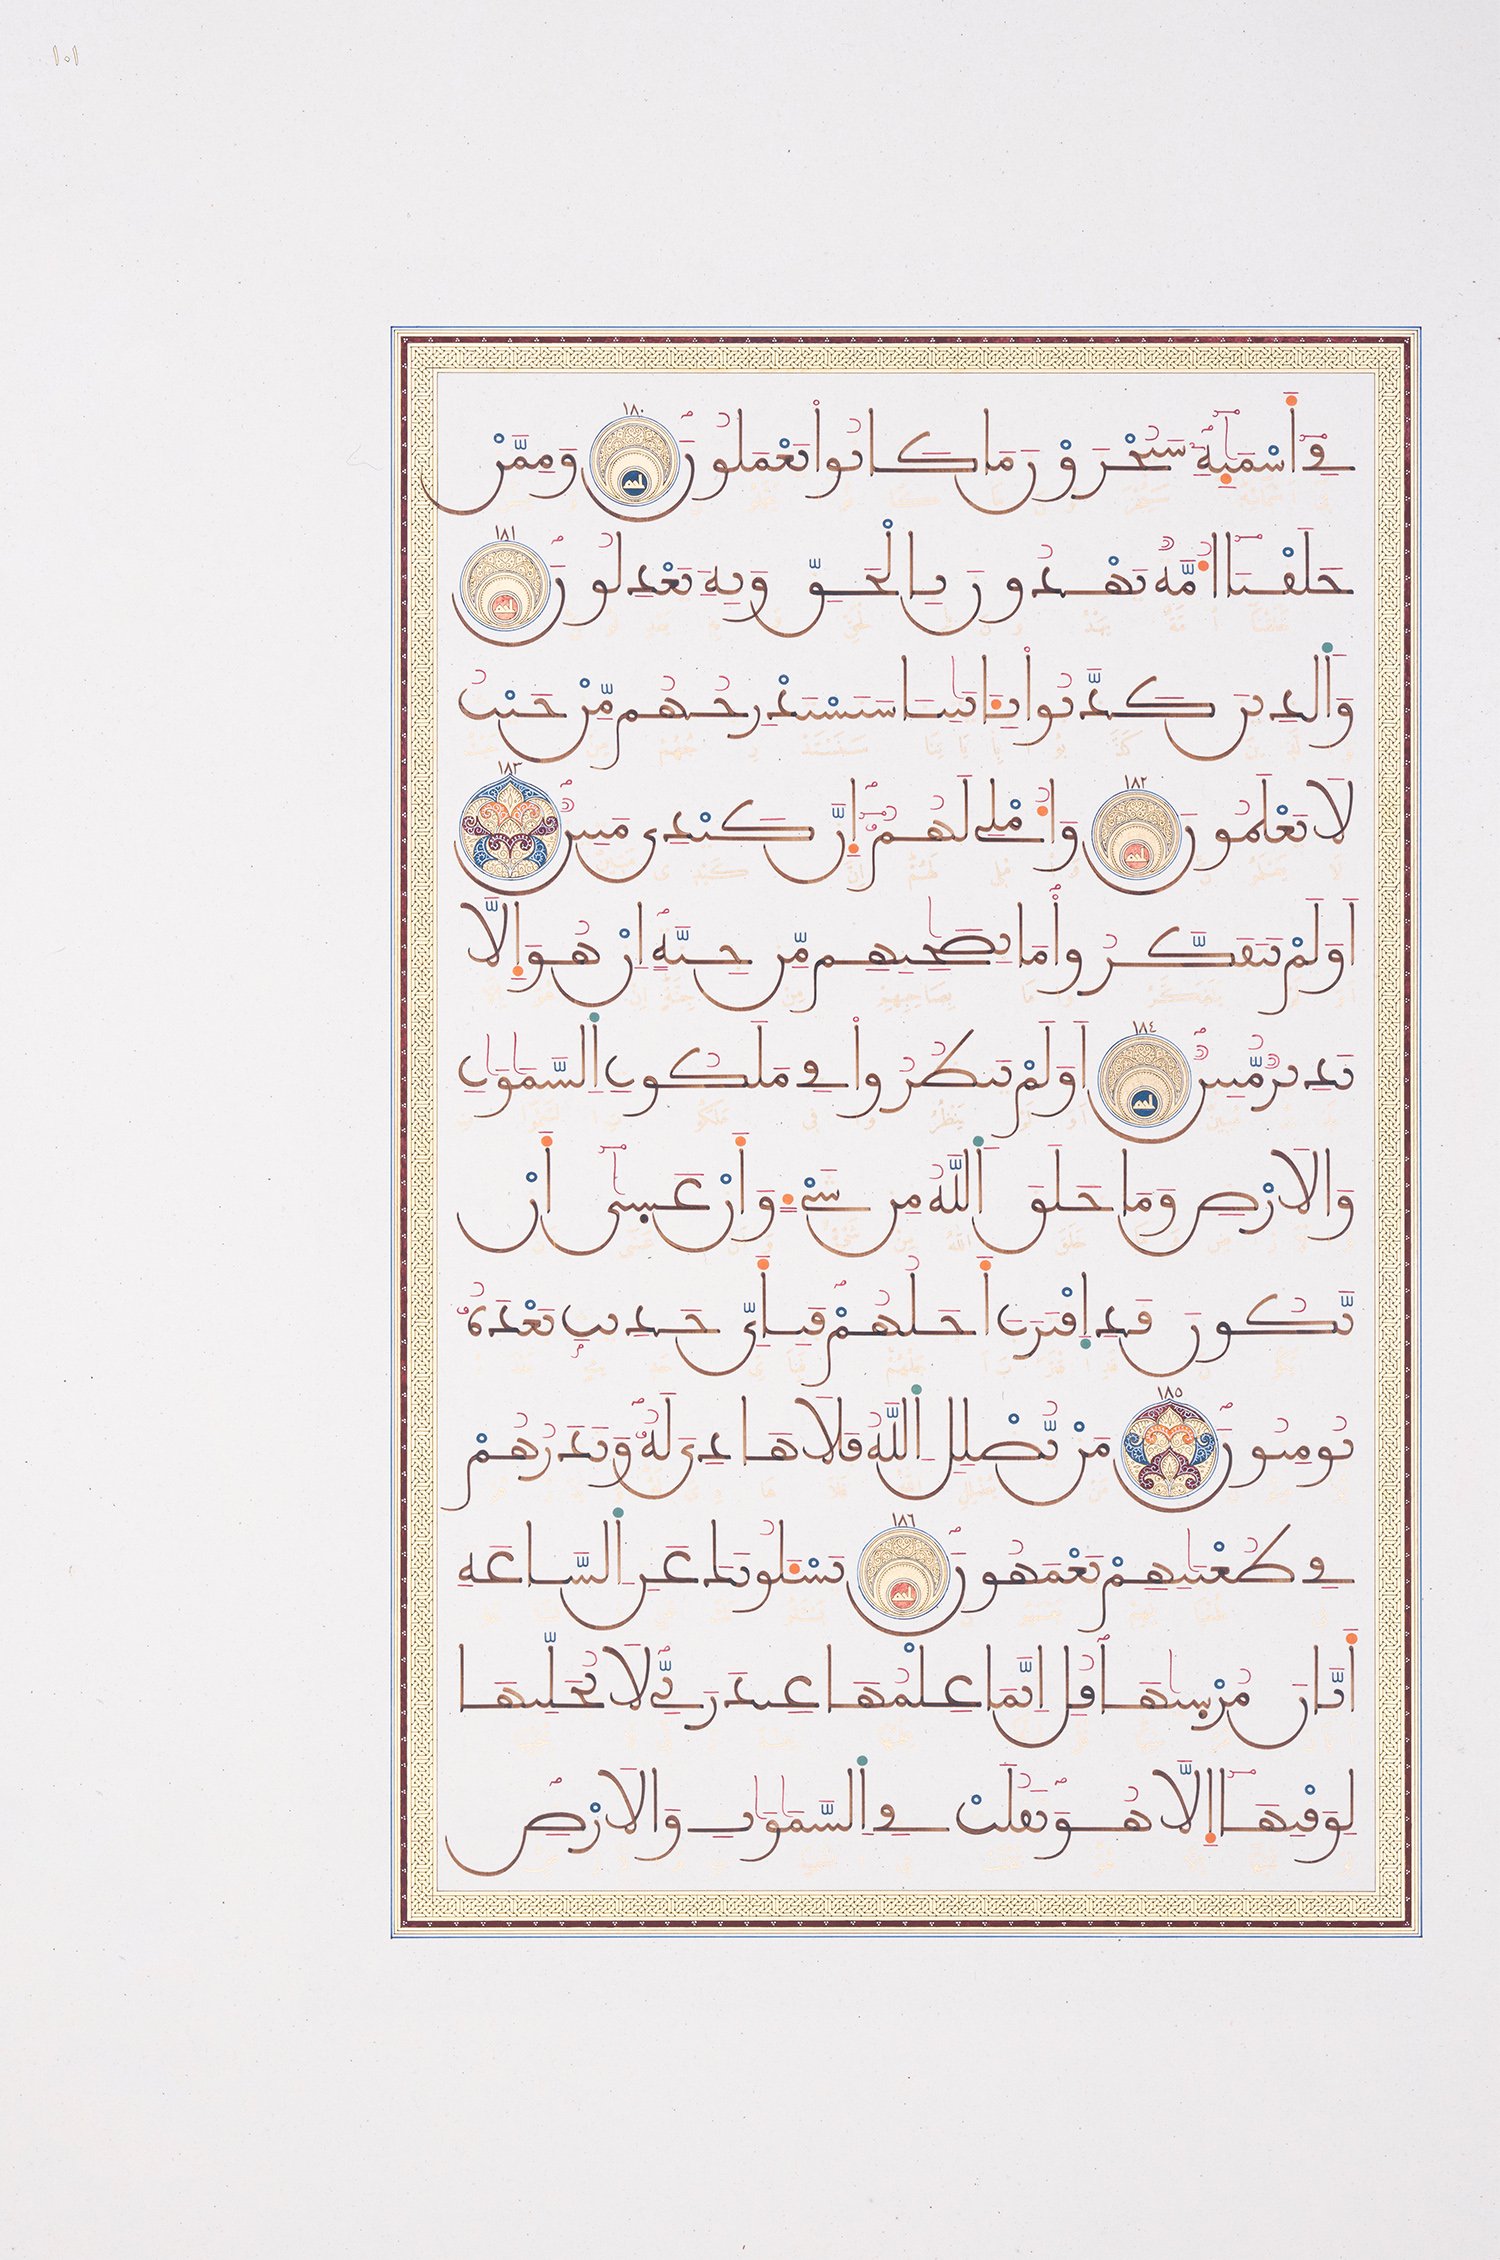 ١٠١
فِي أَسْمَٰٓئِهِۦ سَيُجْزَوْنَ مَا كَانُوا۟ يَعْمَلُونَ ١٨٠ وَمِمَّنْ
خَلَقْنَآ أُمَّةٌ يَهْدُونَ بِالْحَقِّ وَبِهِۦ يَعْدِلُونَ ١٨١
وَالَّذِينَ كَذَّبُوا۟ بِـَٔايَٰتِنَا سَنَسْتَدْرِجُهُم مِّنْ حَيْثُ
لَا يَعْلَمُونَ ١٨٢ وَأُمْلِي لَهُمُۥٓ إِنَّ كَيْدِي مَتِينٌ ١٨٣
أَوَلَمْ يَتَفَكَّرُوا۟ مَا بِصَٰحِبِهِم مِّن جِنَّةٍ إِنْ هُوَ إِلَّا
نَذِيرٌ مُّبِينٌ ١٨٤ أَوَلَمْ يَنظُرُوا۟ فِي مَلَكُوتِ السَّمَٰوَٰتِ
وَالْأَرْضِ وَمَا خَلَقَ اللَّهُ مِن شَيْءٍ وَأَنْ عَسَىٰٓ أَنْ
يَّكُونَ قَدِ اقْتَرَبَ أَجَلُهُمْ فَبِأَيِّ حَدِيثٍ بَعْدَهُۥ
يُومِنُونَ ١٨٥ مَنْ يُّضْلِلِ اللَّهُ فَلَا هَادِيَ لَهُۥ وَنَذَرُهُمْ
فِي طُغْيَٰنِهِمْ يَعْمَهُونَ ١٨٦ يَسْـَٔلُونَكَ عَنِ السَّاعَةِ
أَيَّانَ مُرْسَىٰهَا قُلْ إِنَّمَا عِلْمُهَا عِندَ رَبِّي لَا يُجَلِّيهَا
لِوَقْتِهَآ إِلَّا هُوَ ثَقُلَتْ فِي السَّمَٰوَٰتِ وَالْأَرْضِ